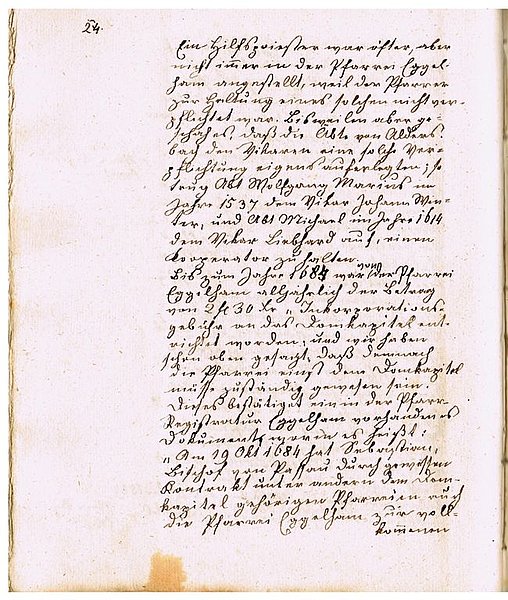 24.
Ein Hilfspriester war öfter, aber
nicht immer in der Pfarrei Eggel-
ham angestellt, weil der Pfarrer
zur Haltung eines solchen nicht ver-
pflichtet war. Bisweilen aber ge-
schah es, daß die Äbte von Alders-
bach den Vikaren eine solche Ver-
pflichtung eigens auferlegten; so
trug Abt Wolfgang Marius im
Jahre 1537 dem Vikar Johann Win-
ter, und Abt Michael im Jahre 1614
dem Vikar Liebhard auf, einen
Kooperator zu halten.
Bis zum Jahre 1684 war von der Pfarrei
Eggelham alljährlich der Betrag
von 2 fl 30 Xr „Inkorporations-
gebühr an das Domkapitel ent-
richtet worden, und wir haben
schon oben gesagt, daß demnach
die Pfarrei einst dem Domkapitel
müsse zuständig gewesen sein.
Dieses bestätiget ein in der Pfarr-
Registratur Eggelham vorhandenes
Dokument, worin es heißt:
„Am 19 Okt 1684 hat Sebastian,
Bischof von Passau durch gewissen
Kontrakt unter andern dem Dom-
kapitel gehörigen Pfarreien auch
die Pfarrei Eggelham zur voll-
kommenen